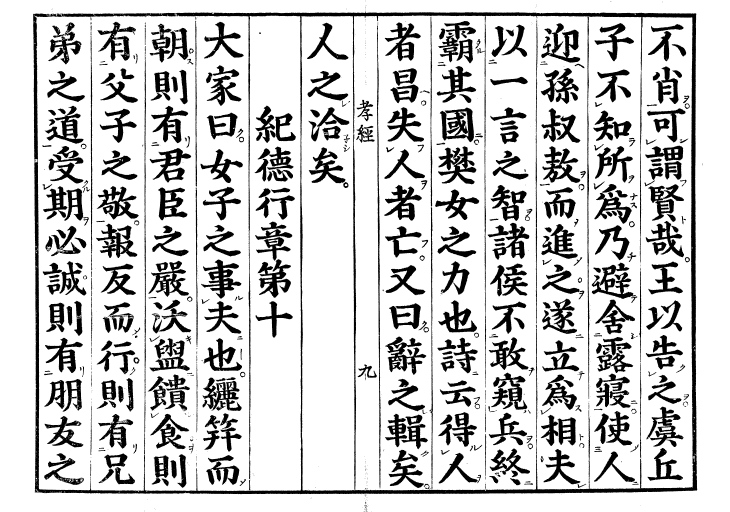 不肖可謂賢哉王以告之虞丘
子不知所爲乃避舍露寢使人
迎孫叔敖而進之遂立爲相夫
以一言之智諸侯不敢窺兵終
霸其國樊女之力也詩云得人
者昌失人者亡又曰辭之輯矣
孝經
九
人之洽矣
紀德行章第十
大家曰女子之事夫也纚笄而
朝則有君臣之嚴沃盥饋食則
有父子之敬報反而行則有兄
弟之道受期必誠則有朋友之